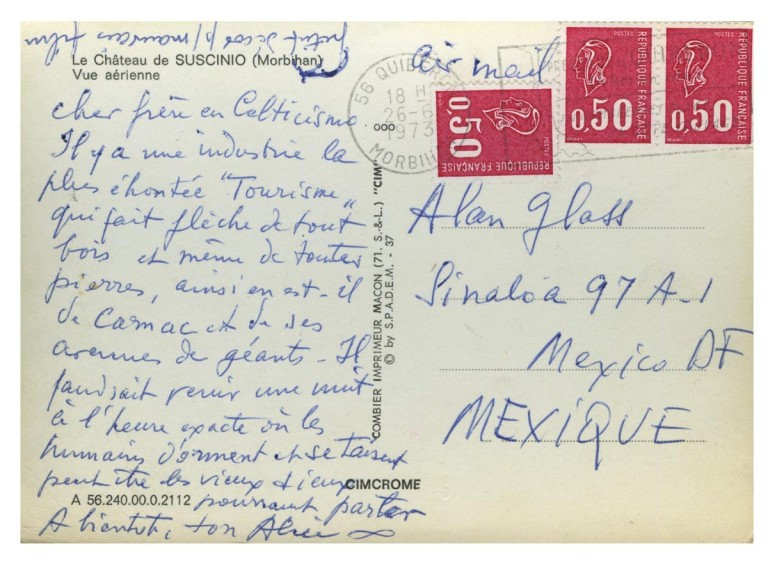 Le Château de SUSCINIO (Morbihan)
Vue aérienne
cher frère en Celticismo
Il y a une industrie la
plus éhontée "Tourisme"
qui fait flèche de tout
bois et même de toutes
pierres, ainsi en est-il
de Carnac et de ses
avenues de géants - Il
faudrait venir une nuit
à l'heure exacte où les
humains dorment et se taisent
peut être les vieux dieux
pourront parler
A bientôt, ton
A 56.240.00.0.2112
CIMCROME
COMBIER IMPRIMEUR MACON (71. S.-&-L.) "CIM"
© by S.P.A.D.E.M. - 37
air mail
56 QUIBERON
18 H
26-6
1973
MORBIHAN
POSTES
0,50
REPUBLIQUE FRANÇAISE
POSTES
0,50
REPUBLIQUE FRANÇAISE
POSTES
0,50
REPUBLIQUE FRANÇAISE
Alan Glass
Sinaloa 97 A-1
Mexico DF
MEXIQUE